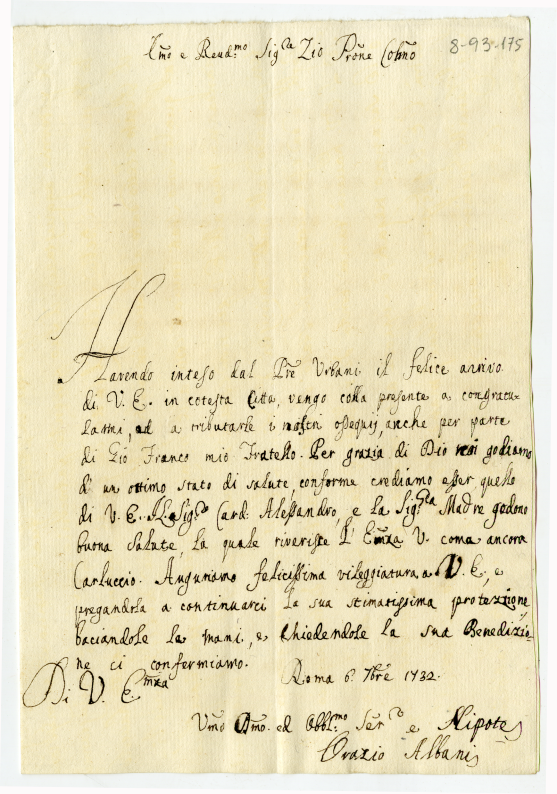 Emo e Reud.mo Sig.re Zio Prone Colmo
8-93-175
Havendo inteso dal Pre Urbani il felice arrivo
di V. E. in cotesta Citta, vengo colla presente a congratu-
larmi, ed a tributarle i nostri ossequij, anche per parte
di Gio Franco mio Fratello. Per grazia di Dio noi godiamo
d'un ottimo stato di salute, conforme crediamo esser quello
di V. E. Il Sig.r Card. Alessandro, e la Sig.ra Madre godono
buona salute, la quale riverisce l'Emza V. come ancora
Carluccio. Auguriamo felicissima villeggiatura a V. E., e
pregandola a continuarci la sua stimatissima protezzione
baciandole le mani, e chiedendole la sua Benedizio-
ne ci confermiamo.
Roma 6 7bre 1732.
Di V. E.mza
Umo Dmo. ed Obbl.mo Ser.e e Nipote
Orazio Albani